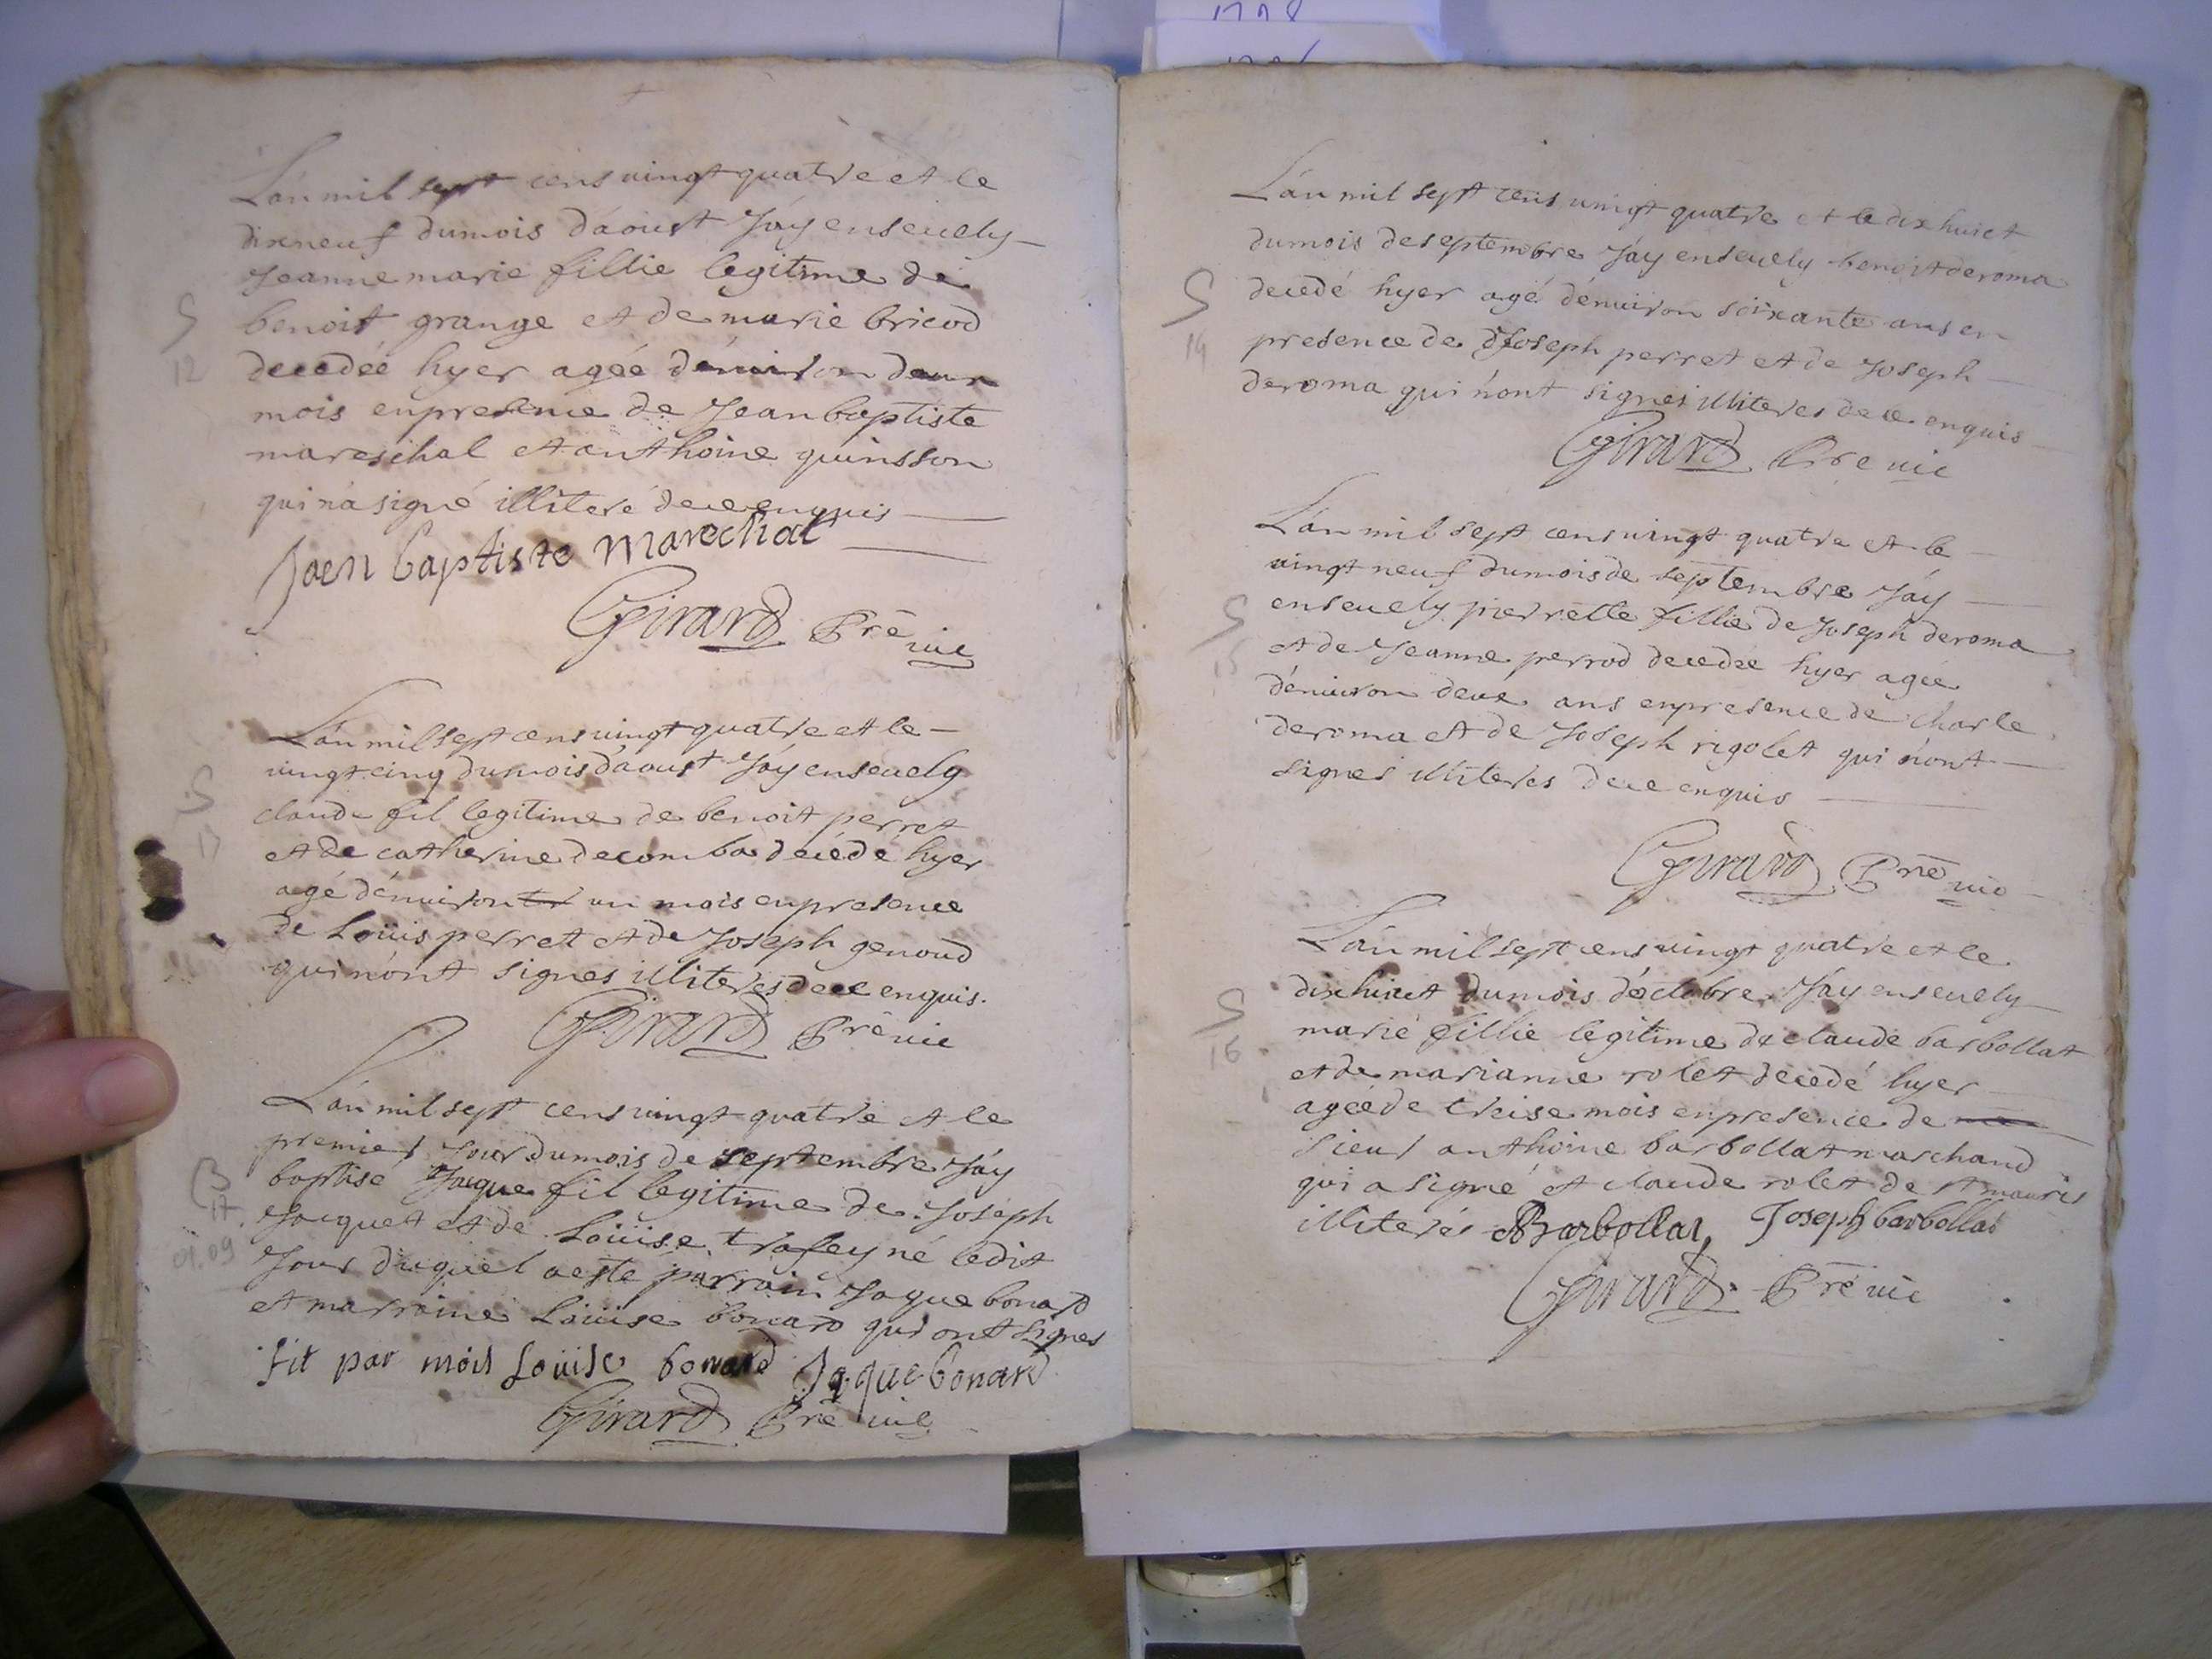 L'an mil sept cens vingt quatre et le
dixneuf du mois d'aoust J'ay enseuely
Jeanne marie fillie legitime de
benoit grange et de marie bricod
decedée hyer agée d'enuiron deux
mois en presence de Jean baptiste
mareschal et anthoine quinsson
qui n'a signé illiteré de ce enquis
S
12
Jaen baptiste marechal
Girard Prê vic
L'an mil sept cens vingt quatre et le
vingt cinq du mois d'aoust J'ay enseuely
claude fil legitime de benoit perret
et de catherine decomba decédé hyer
agé d'enuiron un mois en presence
de Loüis perret et de Joseph genoud
qui n'ont signes illiteres de ce enquis.
S
13
Girard Prê vic
L'an mil sept cens vingt quatre et le
premier Jour du mois de septembre J'ay
baptisé Jaque fil legitime de Joseph
Jacquet et de Loüise trafey né ledit
Jour duquel a esté parrain Jaque bonard
et marraine Loüise bonard qui ont signes
B
17
01.09
fit par moil Louise bonard Jaque bonard
Girard Prê vic
L'an mil sept cens vingt quatre et le dix huict
du mois de septembre J'ay enseuely benoit deroma
decedé hyer agé d'enuiron soixante ans en
presence de Joseph perret et de Joseph
deroma qui n'ont signes illiteres de ce enquis
S
14
Girard Prê vic
L'an mil sept cens vingt quatre et le
vingt neuf du mois de septembre J'ay
enseuely pierrette fillie de Joseph deroma
et de Jeanne perrod decedée hyer agée
d'enuiron deux ans en presence de Charle
deroma et de Joseph rigolet qui n'ont
signes illiteres de ce enquis
S
15
Girard Prê vic
L'an mil sept cens vingt quatre et le
dix huict du mois d'octobre J'ay enseuely
marie fillie legitime de claude barbollat
et de marianne rolet decedé hyer
agée de treise mois en presence de
sieur anthoine barbollat marchand
qui a signé et claude rolet de st mauris
illiterés ABarbollat, Joseph barbollat
S
16
Girard Prê vic